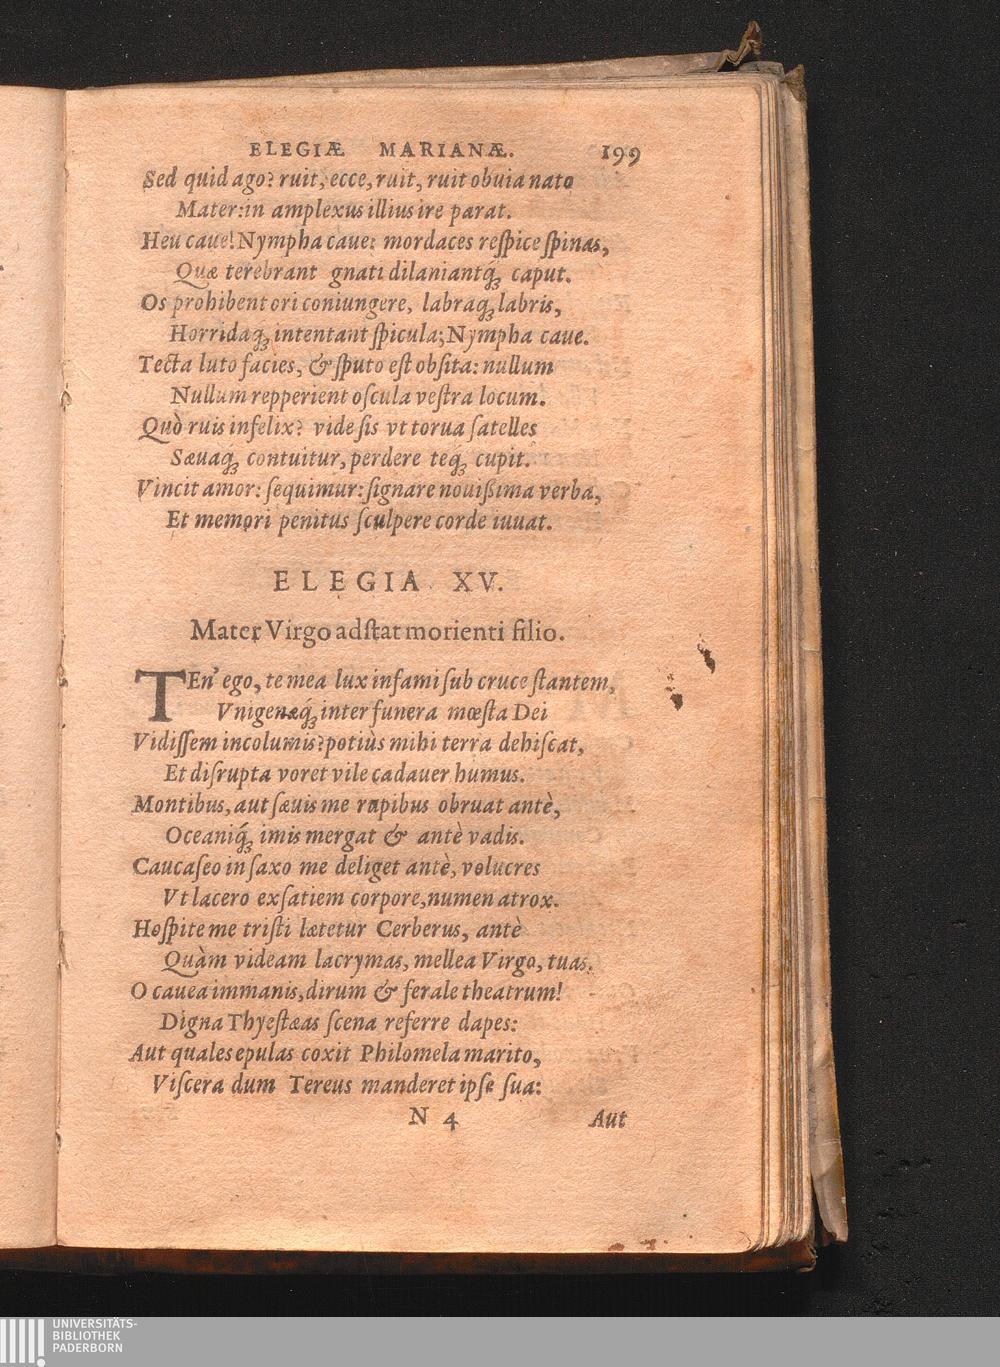 ELEGIÆ MARIANÆ. 199
Sed quid ago? ruit, ecce, ruit, ruit obuia nato
Mater: in amplexus illius ire parat.
Heu caue! Nympha caue: mordaces reſpice ſpinas,
Quæ terebrant gnati dilaniantq́ꝫ caput.
Os prohibent ori coniungere, labraqꝫ labris,
Horridaqꝫ intentant ſpicula; Nympha caue.
Tecta luto facies, & ſputo eſt obſita: nullum
Nullum repperient oſcula veſtra locum.
Quò ruis infelix? vide ſis vt torua ſatelles
Sæuaq́ꝫ contuitur, perdere teq́ꝫ cupit.
Vincit amor: ſequimur: ſignare nouißima verba,
Et memori penitus ſculpere corde iuuat.
ELEGIA XV.
Mater Virgo adſtat morienti filio.
TEn' ego, te mea lux infami ſub cruce ſtantem,
Vnigenæq́ꝫ inter funera mœſta Dei
Vidiſſem incolumis? potiùs mihi terra dehiſcat,
Et diſrupta voret vile cadauer humus.
Montibus, aut ſæuis me rupibus obruat antè,
Oceaniq́ꝫ imis mergat & antè vadis.
Caucaſeo in ſaxo me deliget antè, volucres
Vt lacero exſatiem corpore, numen atrox.
Hoſpite me triſti lætetur Cerberus, antè
Quàm videam lacrymas, mellea Virgo, tuas.
O cauea immanis, dirum & ferale theatrum!
Digna Thyeſtæas ſcena referre dapes:
Aut quales epulas coxit Philomela marito,
Viſcera dum Tereus manderet ipſe ſua:
N 4 Aut
UNIVERSITÄTS-
BIBLIOTHEK
PADERBORN